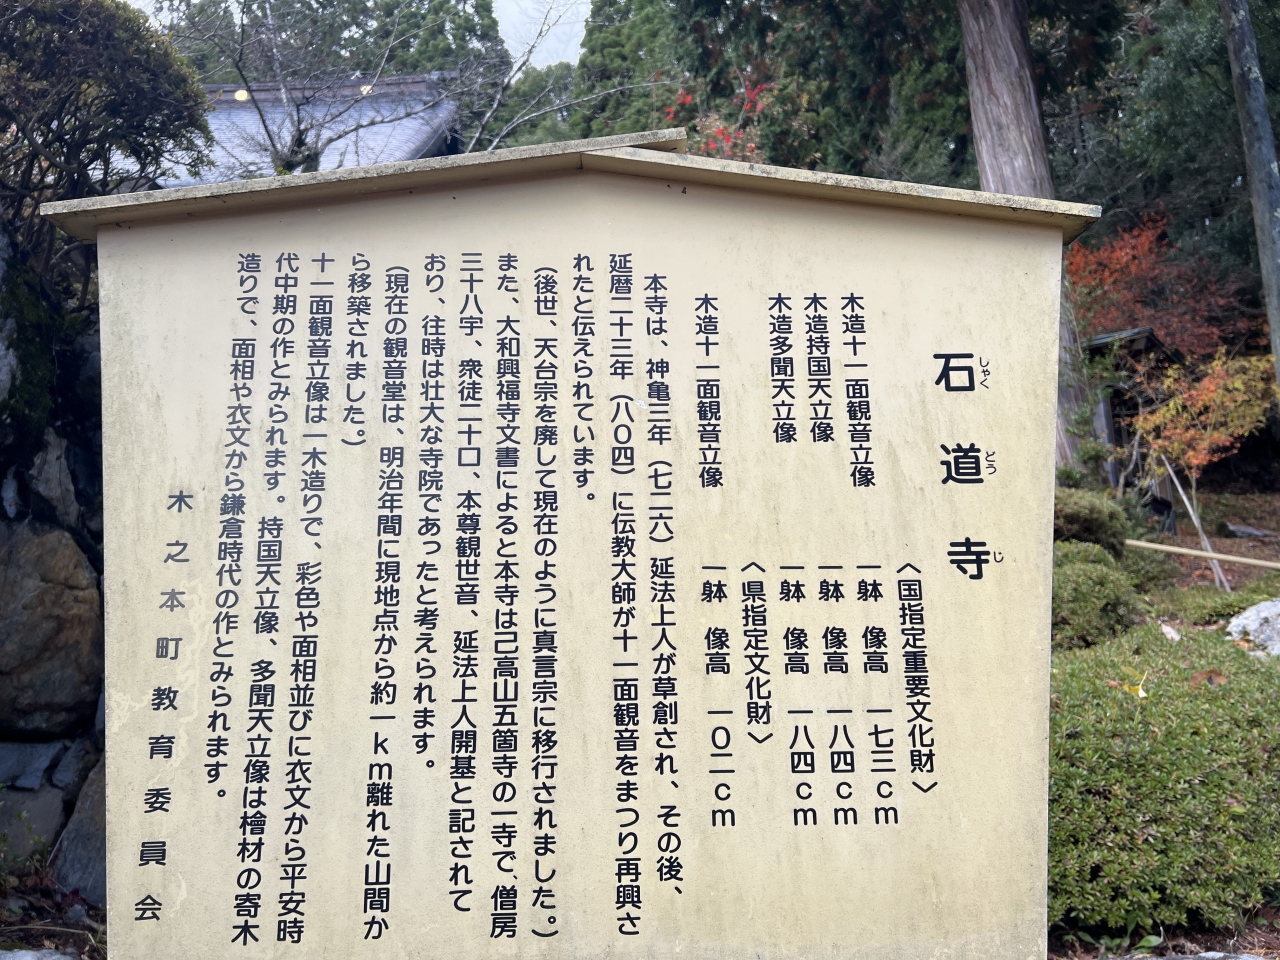 石道寺
しゃくとうじ
〈国指定重要文化財〉
木造十一面観音立像 一躰 像高 一七三cm
木造持国天立像 一躰 像高 一八四cm
木造多聞天立像 一躰 像高 一八四cm
〈県指定文化財〉
木造十一面観音立像 一躰 像高 一〇二cm
本寺は、神亀三年(七二六)延法上人が草創され、その後、
延暦二十三年(八〇四)に伝教大師が十一面観音をまつり再興さ
れたと伝えられています。
(後世、天台宗を廃して現在のように真言宗に移行されました。)
また、大和興福寺文書によると本寺は己高山五箇寺の一寺で、僧房
三十八宇、衆徒二十口、本尊観世音、延法上人開基と記されて
おり、往時は壮大な寺院であったと考えられます。
(現在の観音堂は、明治年間に現地点から約一km離れた山間か
ら移築されました。)
十一面観音立像は一木造りで、彩色や面相並びに衣文から平安時
代中期の作とみられます。持国天立像、多聞天立像は檜材の寄木
造りで、面相や衣文から鎌倉時代の作とみられます。
木之本町教育委員会